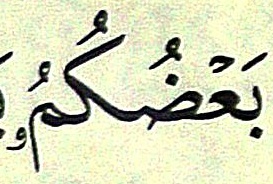 بَعْضُكُمُ